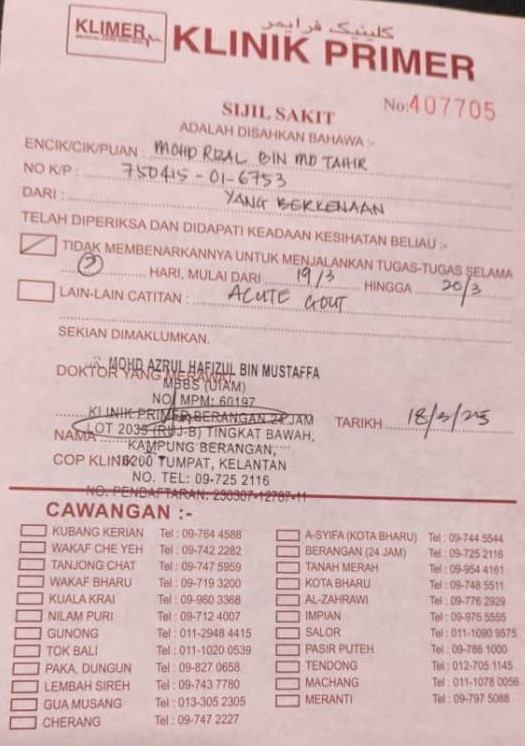 KLIMER
كلينيك فرايمر
KLINIK PRIMER
No: 407705
SIJIL SAKIT
ADALAH DISAHKAN BAHAWA :-
ENCIK/CIK/PUAN : MOHD RIZAL BIN MD TAHIR
NO K/P : 750415-01-6753
DARI : YANG BERKENAAN
TELAH DIPERIKSA DAN DIDAPATI KEADAAN KESIHATAN BELIAU :-
TIDAK MEMBENARKANNYA UNTUK MENJALANKAN TUGAS-TUGAS SELAMA
2 HARI, MULAI DARI 19/3 HINGGA 20/3
LAIN-LAIN CATITAN : ACUTE GOUT
SEKIAN DIMAKLUMKAN.
MOHD AZRUL HAFIZUL BIN MUSTAFFA
DOKTOR YANG MERAWAT
MBBS (UIAM)
NO. MPM: 60197
KLINIK PRIMER BERANGAN 24 JAM
TARIKH 18/3/25
LOT 2035 (RUJ-B) TINGKAT BAWAH,
NAMA
KAMPUNG BERANGAN,
COP KLINIK
16200 TUMPAT, KELANTAN
NO. TEL: 09-725 2116
NO. PENDAFTARAN: 230307-12787-11
CAWANGAN :-
KUBANG KERIAN Tel : 09-764 4588
WAKAF CHE YEH Tel : 09-742 2282
TANJONG CHAT Tel : 09-747 5959
WAKAF BHARU Tel : 09-719 3200
KUALA KRAI Tel : 09-960 3368
NILAM PURI Tel : 09-712 4007
GUNONG Tel : 011-2948 4415
TOK BALI Tel : 011-1020 0539
PAKA, DUNGUN Tel : 09-827 0658
LEMBAH SIREH Tel : 09-743 7780
GUA MUSANG Tel : 013-305 2305
CHERANG Tel : 09-747 2227
A-SYIFA (KOTA BHARU) Tel : 09-744 5544
BERANGAN (24 JAM) Tel : 09-725 2116
TANAH MERAH Tel : 09-954 4161
KOTA BHARU Tel : 09-748 5511
AL-ZAHRAWI Tel : 09-776 2929
IMPIAN Tel : 09-975 5555
SALOR Tel : 011-1090 9575
PASIR PUTEH Tel : 09-786 1000
TENDONG Tel : 012-705 1145
MACHANG Tel : 011-1078 0056
MERANTI Tel : 09-797 5088